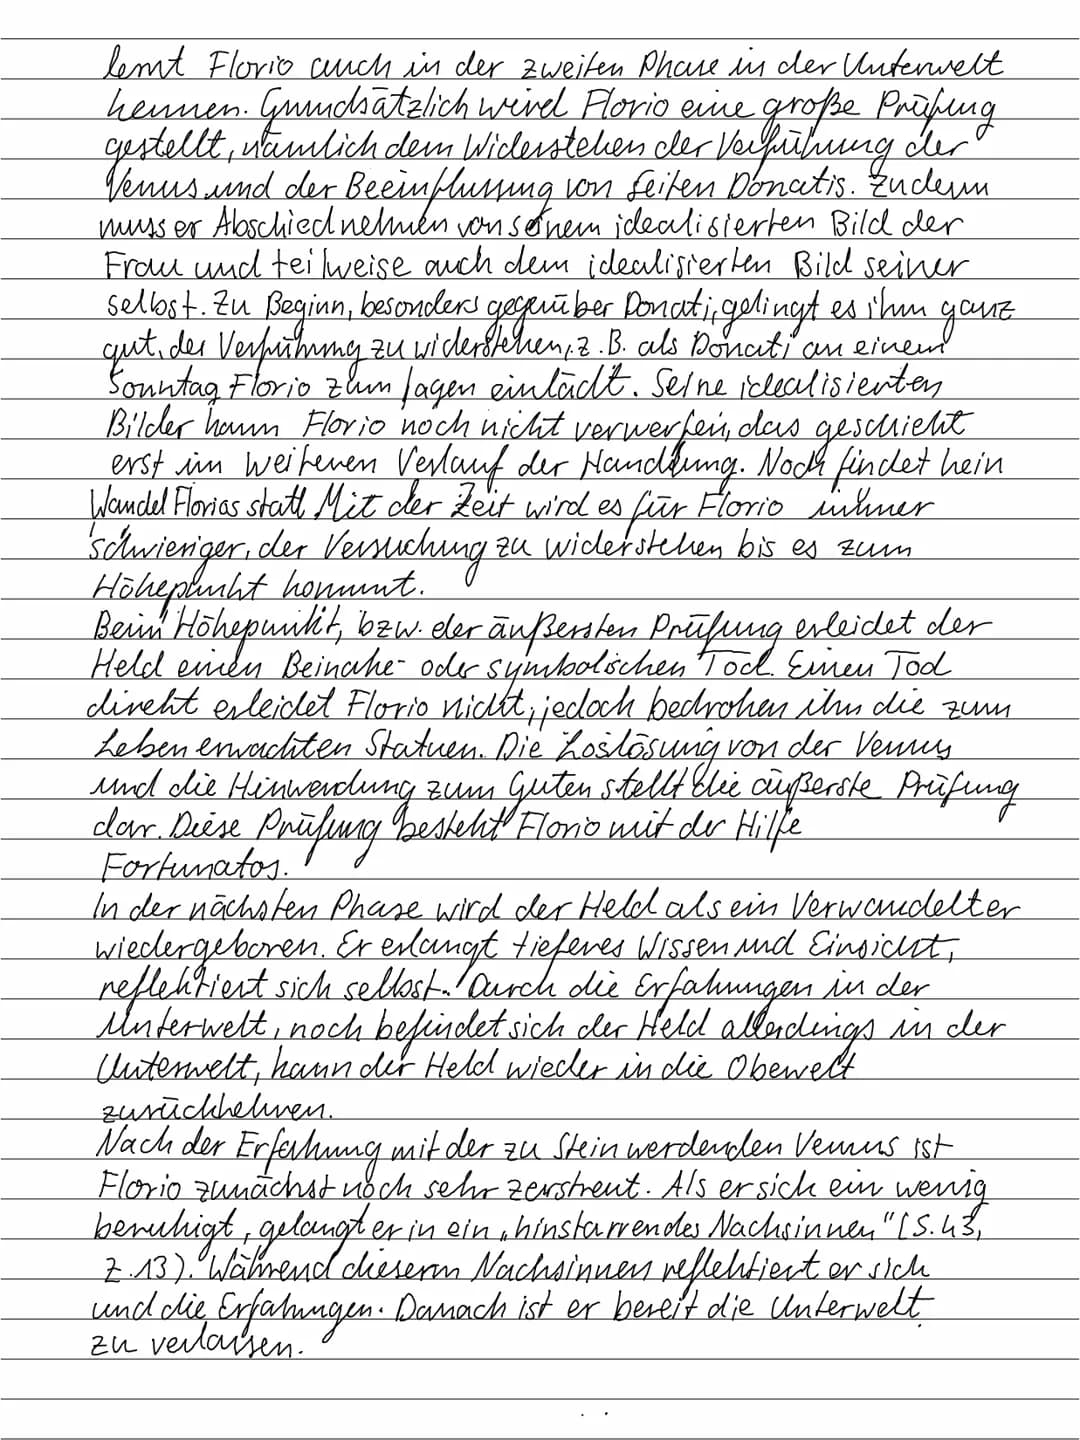 lernt Florio auch in der zweiten Phase in der Unterwelt
kennen. Grundsätzlich wird Florio eine große Prüfung
gestellt, nämlich dem Widerstehen der Verführung der
Venus und der Beeinflussung von Seiten Donatis. Zudem
muss er Abschied nehmen von seinem idealisierten Bild der
Frau und teilweise auch dem idealisierten Bild seiner
selbst. Zu Beginn, besonders gegenüber Donati, gelingt es ihm ganz
gut, der Verführung zu widerstehen, z.B. als Donati an einem
Sonntag Florio zum Jagen einlädt. Seine idealisierten
Bilder kann Florio noch nicht verwerfen, das geschieht
erst im weiteren Verlauf der Handlung. Noch findet kein
Wandel Florios statt. Mit der Zeit wird es für Florio immer
schwieriger, der Versuchung zu widerstehen bis es zum
Höhepunkt kommt.
Beim Höhepunkt, bzw. der äußersten Prüfung erleidet der
Held einen Beinahe- oder symbolischen Tod. Einen Tod
direkt erleidet Florio nicht, jedoch bedrohen ihn die zum
Leben erwachten Statuen. Die Loslösung von der Venus
und die Hinwendung zum Guten stellt die äußerste Prüfung
dar. Diese Prüfung besteht Florio mit der Hilfe
Fortunatos.
In der nächsten Phase wird der Held als ein Verwandelter
wiedergeboren. Er erlangt tieferes Wissen und Einsicht,
reflektiert sich selbst. Durch die Erfahrungen in der
Unterwelt, noch befindet sich der Held allerdings in der
Unterwelt, kann der Held wieder in die Obewelt
zurückkehren.
Nach der Erfahrung mit der zu Stein werdenden Venus ist
Florio zunächst noch sehr zerstreut. Als er sich ein wenig
beruhigt, gelangt er in ein „hinstarrendes Nachsinnen" (S.43,
Z.13). Während diesem Nachsinnen reflektiert er sich
und die Erfahrungen. Danach ist er bereit die Unterwelt
zu verlassen.